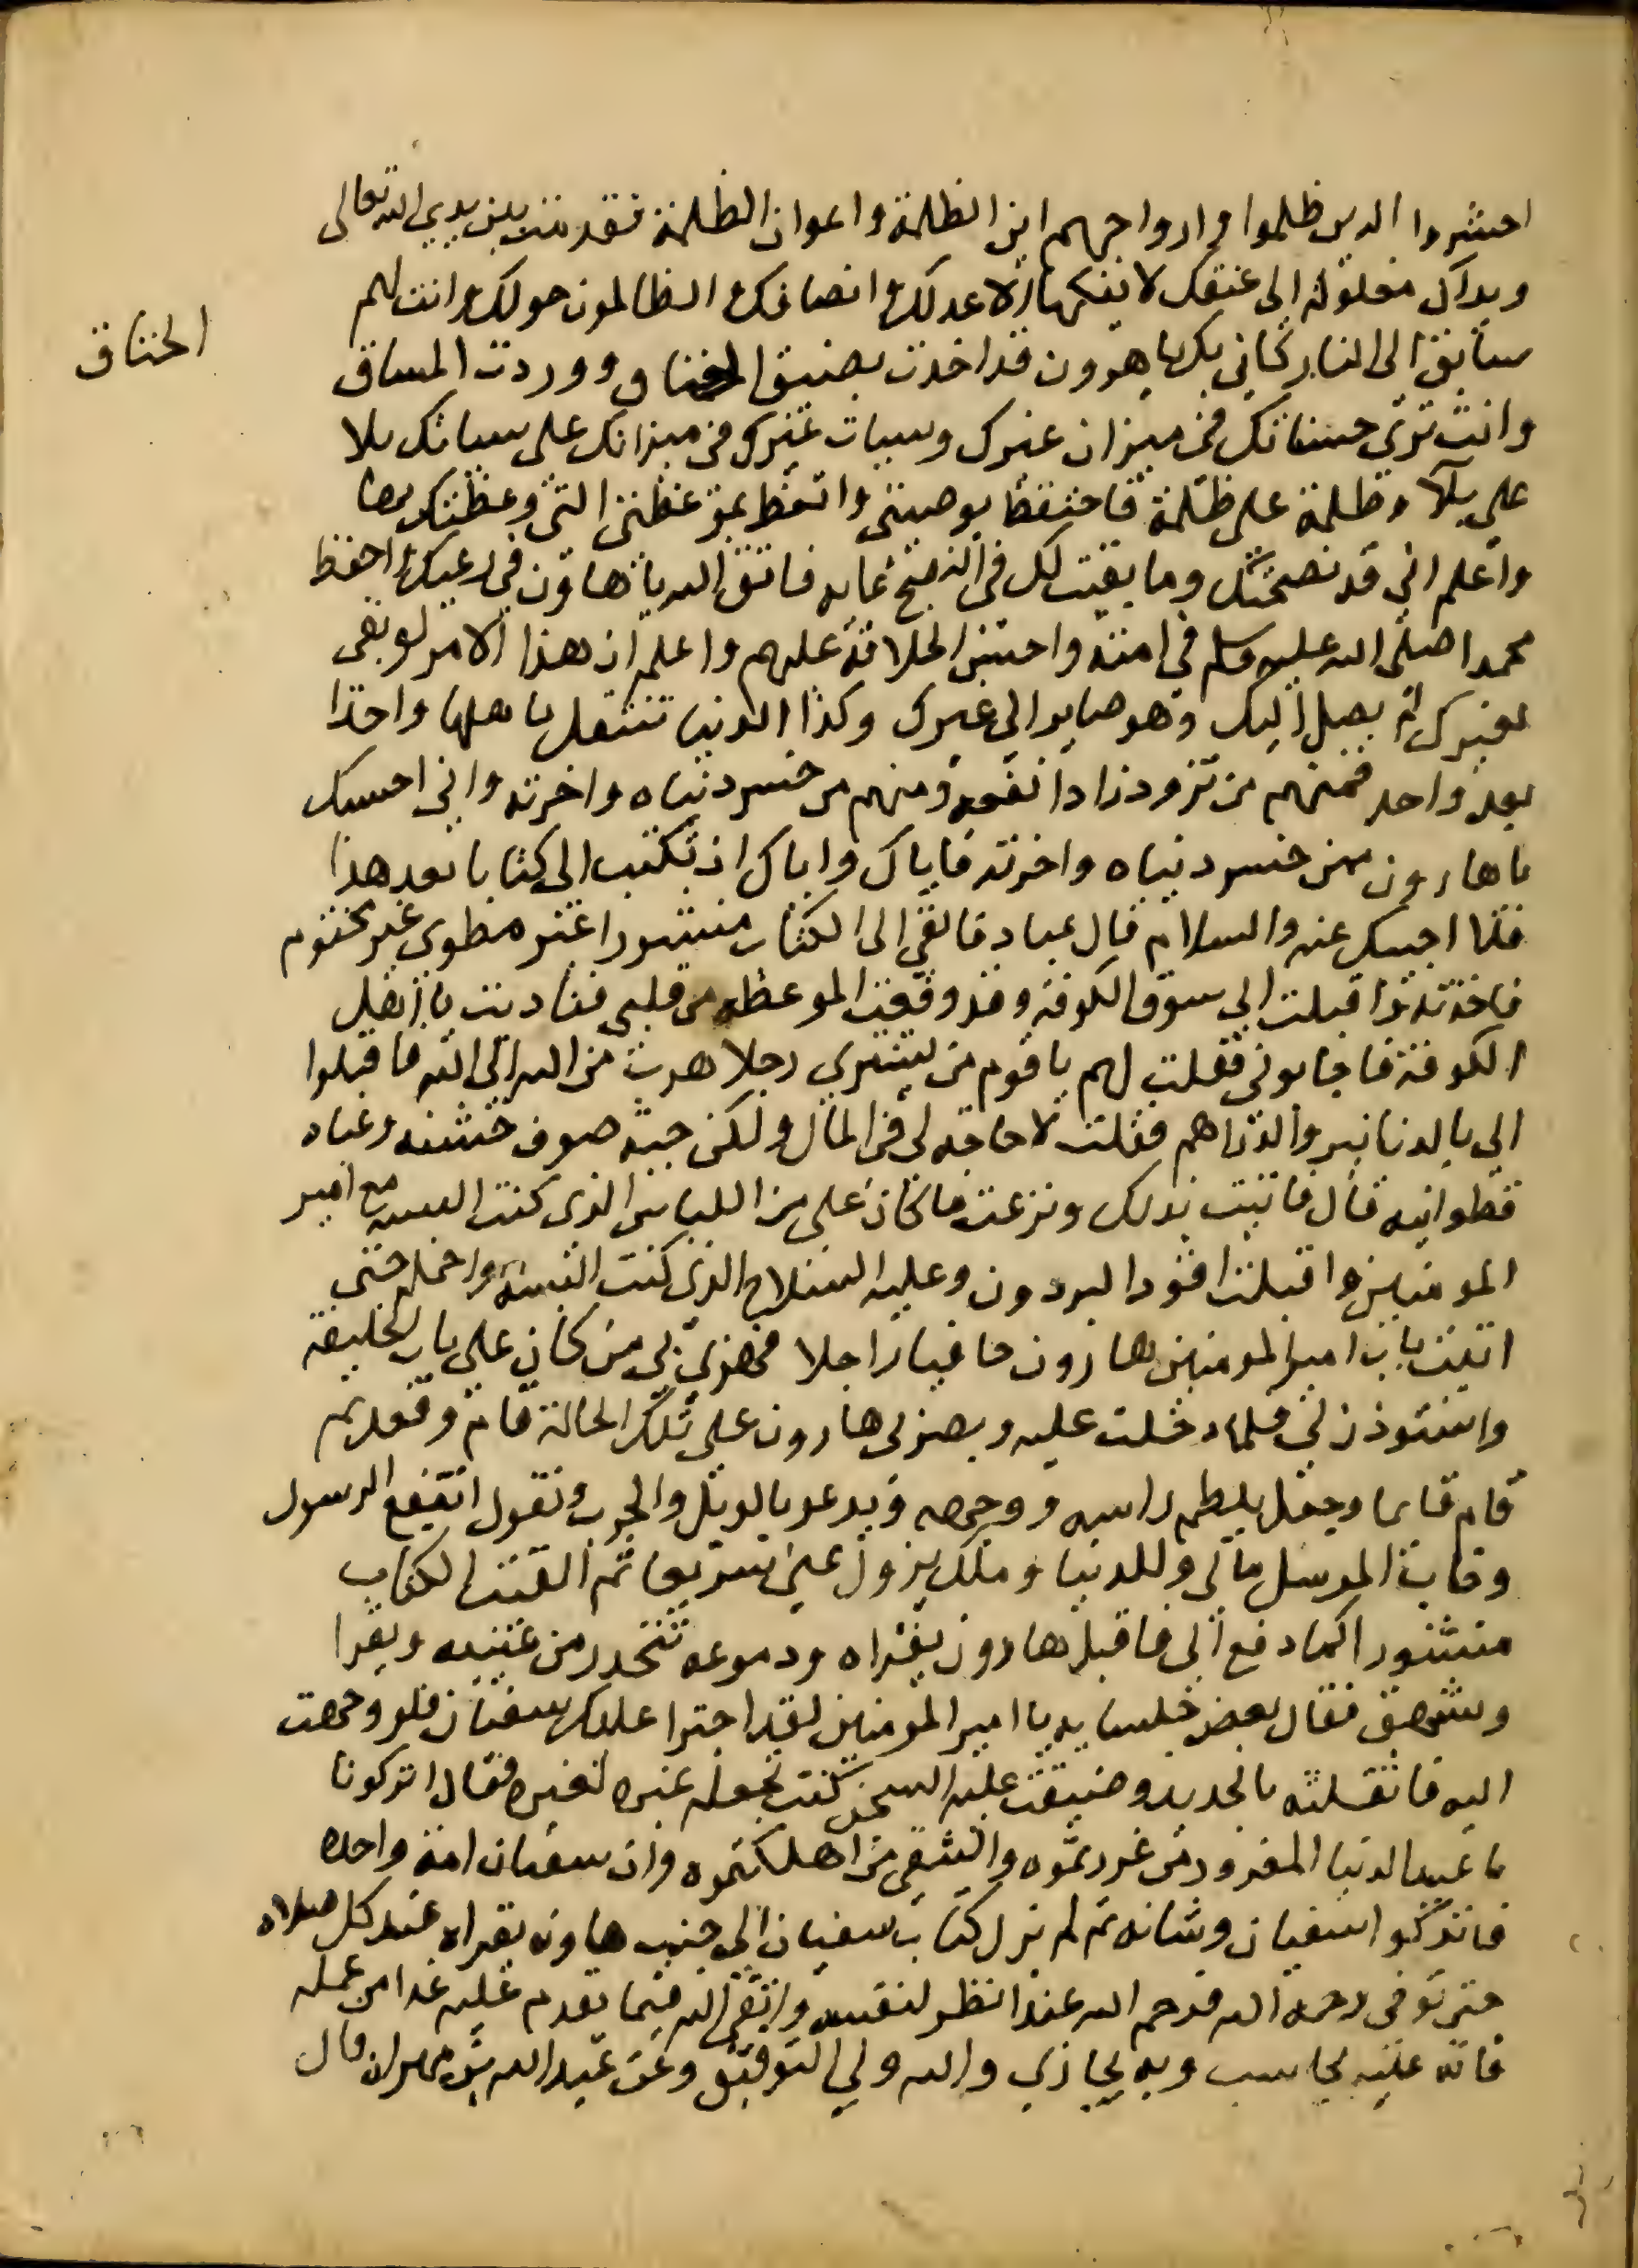 احشروا الذين ظلموا وازواجهم اين الظلمة واعوان الظلمة فقدمت بين يدي الله تعالى
ويداك مغلولة الى عنقك لا يفكهما الا عدلك وانصافك والظالمون حولك وانت لهم
سابق الى النار كاني بك يا هرون قد اخذت بضيق الخناق ووردت المساق
الخناق
وانت ترى حسناتك في ميزان غيرك وسيات غيرك في ميزانك على سياتك بلا
على بلآ وظلمة على ظلمة فاحتفظ بوصيتي واتعظ بموعظتي التي وعظتك بها
واعلم اني قد نصحتك وما بقيت لك في النصح غايه فاتق الله يا هاون في رعيتك واحفظ
محمدا صلى الله عليه وسلم في امته واحسن الخلافة عليهم واعلم ان هذا الامر لو بقى
لغيرك لم يصل اليك وهو صاير الى غيرك وكذا الدنيا تنتقل باهلها واحدا
بعد واحد فمنهم من تزود زادا نفعه ومنهم من خسر دنياه واخرته واني احسبك
يا هارون ممن خسر دنياه واخرته فاياك واياك ان تكتب الى كتابا بعد هذا
فلا اجيبك عنه والسلام قال عباد فالقى الى الكتاب منشورا غير مطوى غير مختوم
فاخذته واقبلت الى سوق الكوفة وقد وقعت الموعظه من قلبي فناديت يا اهل
الكوفة فاجابوني فقلت لهم يا قوم من يشتري رجلا هرب من الله الى الله فاقبلوا
الى بالدنانير والدراهم فقلت لا حاجه لي في المال ولكن جبة صوف خشنه وعباه
قطوانيه قال فاتيت بذلك ونزعت ما كان على من اللباس الذي كنت البسه مع امير
المومنين واقبلت اقود البردون وعليه السلاح الذي كنت البسه واحمله حتى
اتيت باب امير المومنين هارون حافيا راجلا فهزي بي من كان على باب الخليفة
واستوذن لي فلما دخلت عليه وبصر بي هارون على تلك الحالة قام وقعد ثم
قام قايما وجعل يلطم راسه ووجهه ويدعو بالويل والحرب ويقول انتفع الرسول
وخاب المرسل مالي وللدنيا وملك يزول عني سريعا ثم القيت الكتاب
منشورا كما دفع الى فاقبل هارون يقراه ودموعه تتحدر من عينيه ويقرا
ويشهق فقال بعض جلسايه يا امير المومنين لقد اجترا عليك سفيان فلو وجهت
اليه فاثقلته بالحديد وضيقت عليه السجن كنت تجعله عبره لغيره فقال اتركونا
يا عبيد الدنيا المغرور من غررتموه والشقي من اهلكتموه وان سفيان امة واحده
فاتركوا سفيان وشانه ثم لم يزل كتاب سفيان الى جنب هاون يقراه عند كل صلاه
حتى توفى رحمه الله فرحم الله عبدا نظر لنفسه واتقى الله فيما يقدم عليه غدا من عمله
فانه عليه يحاسب وبه يجازي والله ولي التوفيق وعن عبد الله بن مهران قال